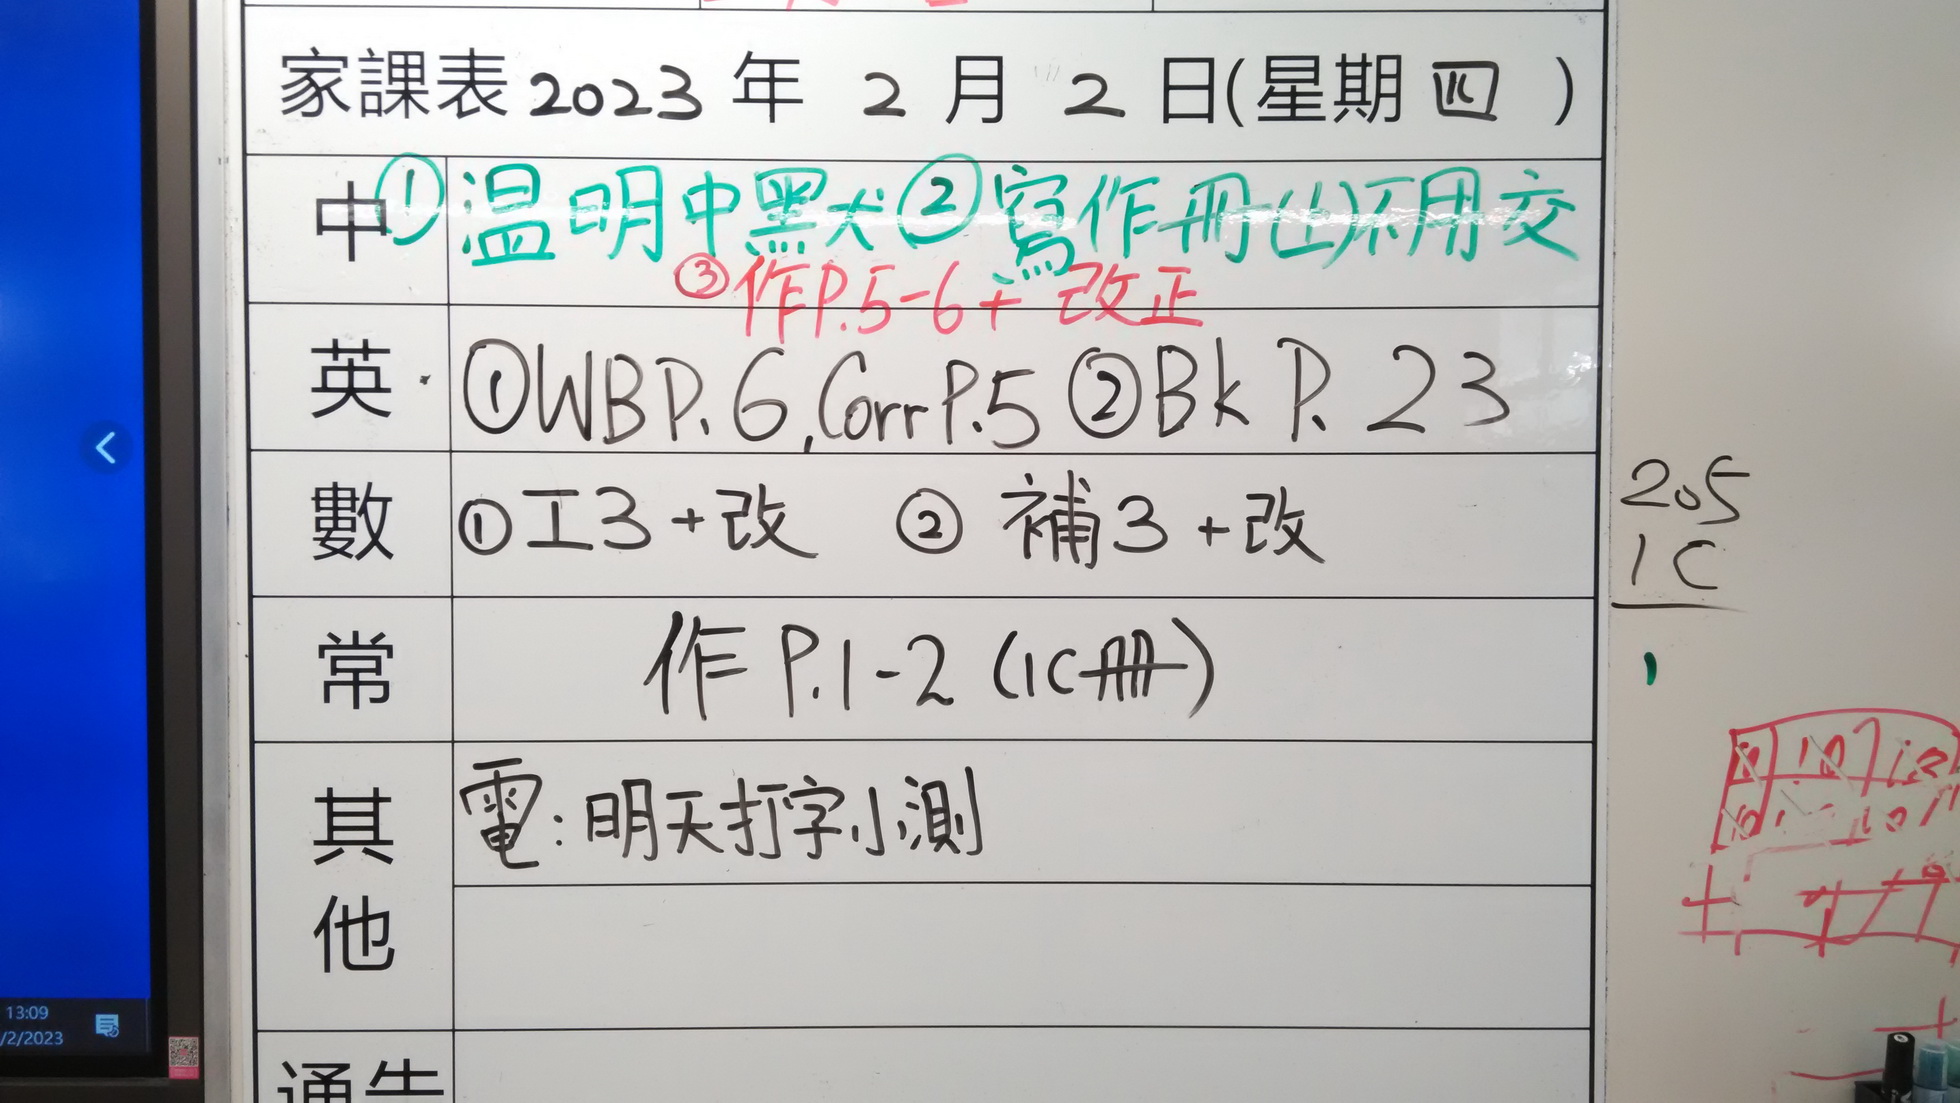 家課表 2023 年 2 月 2 日(星期 四 )
中 ① 温明中黑犬 ② 寫作冊(上)不用交
③ 作P.5-6 + 改正
英 ① WB P.6, Corr P.5 ② Bk P. 23
數 ① 工3+改 ② 補3+改
常 作 P.1-2 (1C冊)
其他 電:明天打字小測
通告
205
1C
13:09
/2/2023